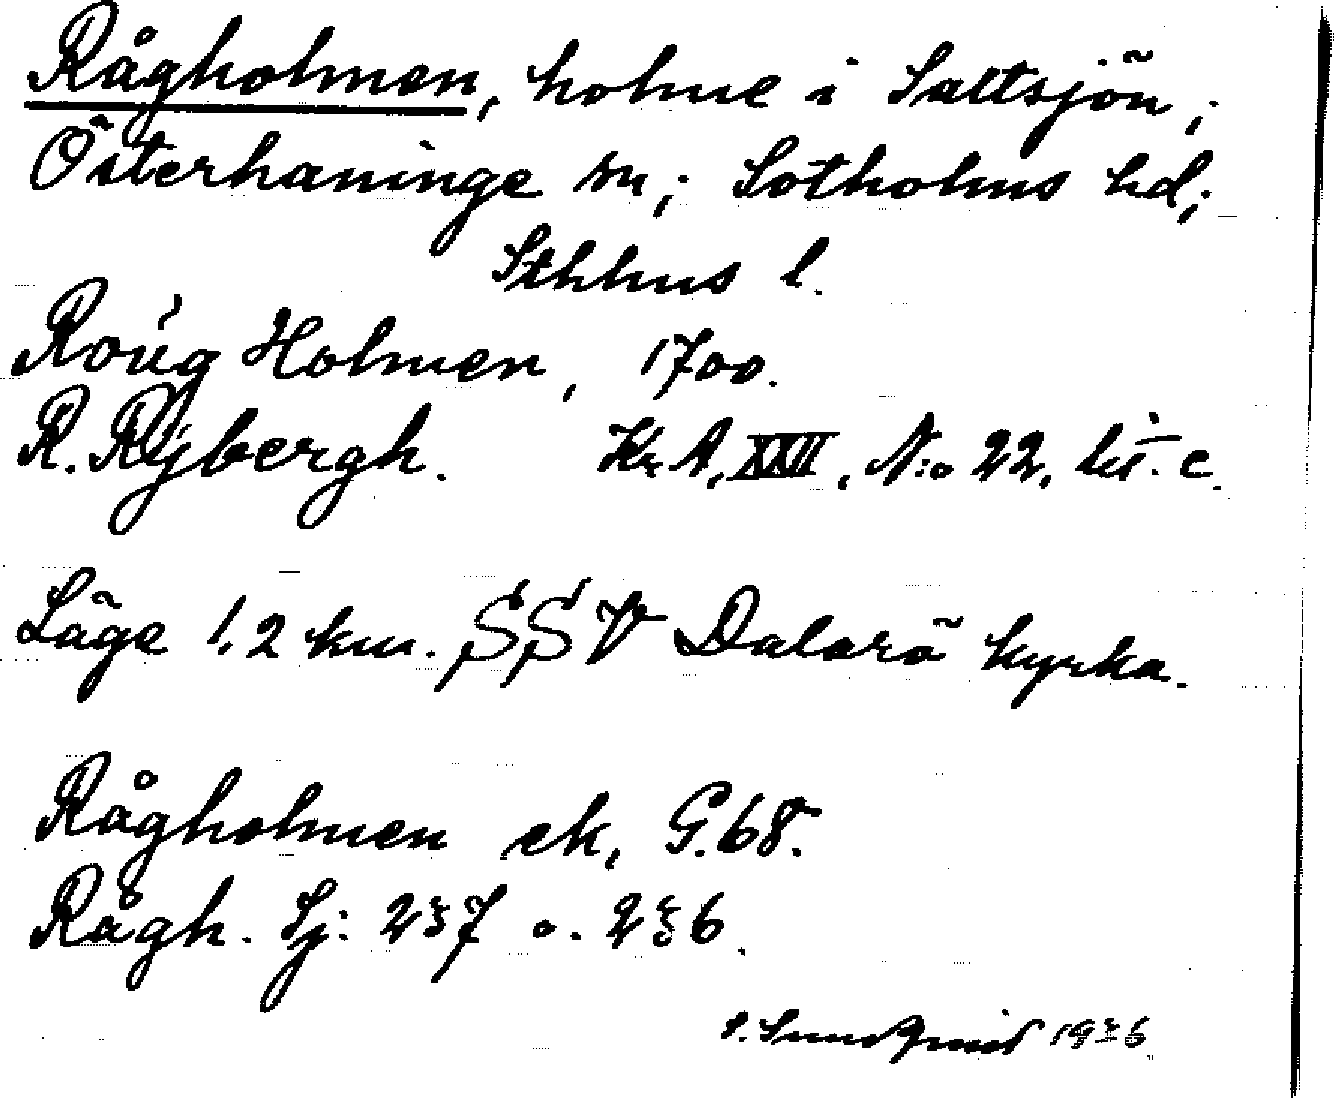 Rågholmen, holme i Saltsjön,
Österhaninge sn; Sotholms hd;
Sthlms l.
Roúg Holmen, 1700.
R. Rÿbergh. Kr. A, XXII, N:o 22, lit. c.
Läge 1.2 km. SSV Dalarö kyrka.
Rågholmen ek, G.68.
Rågh. Sj: 237 o. 236.
S. Sundqvist 1936.